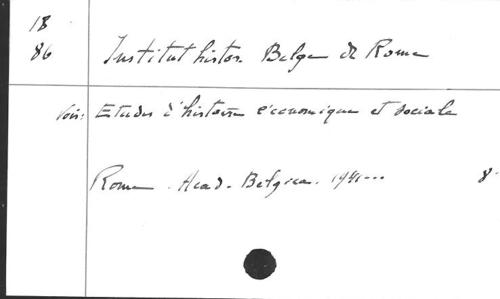 18
86 Institut histor. Belge de Rome
Voir: Etudes d'histoire économique et sociale
Rome. Acad. Belgica. 1941... 8°